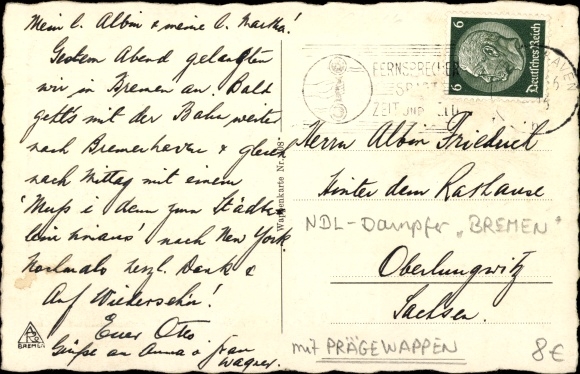 Mein l. Albin & meine l. Martha!
Gestern Abend gelangten
wir in Bremen an. Bald
geht's mit der Bahn weiter
nach Bremerhaven & gleich
nach Mittag mit einem
"Muß i denn zum Städte-
lein hinaus" nach New York.
Nochmals herzl. Dank &
Auf Wiedersehn!
Euer Otto
Grüße an Anna & Frau
Wagner.
BREMEN
Wappenkarte Nr.
6 6
Deutsches Reich
FERNSPRECHER
SPART
ZEIT UND GELD
HAVEN
Herrn Albin Friedrich
Hinter dem Rathause
NDL-Dampfer „BREMEN"
Oberlungwitz
Sachsen.
mit PRÄGEWAPPEN
8€